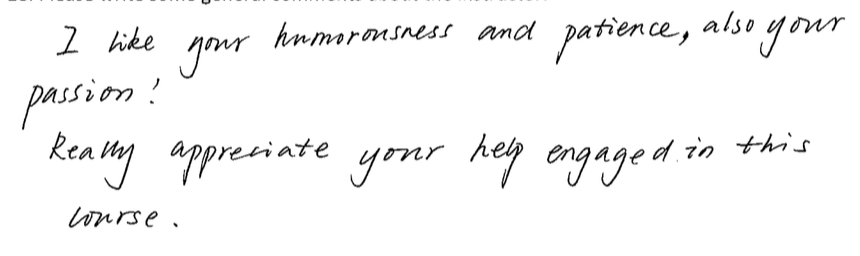 I like your humorousness and patience, also your
passion!
Really appreciate your help engaged in this
course.